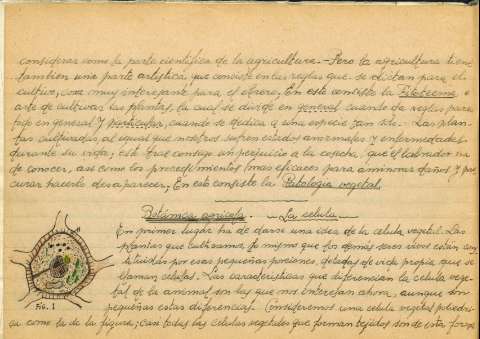 considerar como la parte científica de la agricultura.- Pero la agricultura tiene
también una parte artística, que consiste en las reglas que se dictan para el
cultivo, cosa muy interesante para el obrero. En esto consiste la Fitotecnia o
arte de cultivar las plantas, la cual se divide en general cuando da reglas para
todo en general y particular, cuando se dedica a una especie tan sólo. Las plan-
tas cultivadas, al igual que nosotros sufren estados anormales y enfermedades
durante su vida; esto trae consigo un perjuicio a la cosecha, que el labrador ha
de conocer, así como los procedimientos más eficaces para aminorar daños y pro-
curar hacerlo desaparecer; En esto consiste la Patología vegetal.
Botánica agrícola.- La célula
En primer lugar ha de darse una idea de la célula vegetal. Las
plantas que cultivamos, lo mismo que los demás seres vivos están cons-
tituidas por esas pequeñas porciones, dotadas de vida propia que se
llaman células. Las características que diferencian la célula vege-
tal de la animal son las que nos interesan ahora, aunque son
pequeñas estas diferencias. Consideremos una célula vegetal poliédri-
ca como la de la figura; casi todas las células vegetales que forman tejidos son de esta forma
FIG. 1